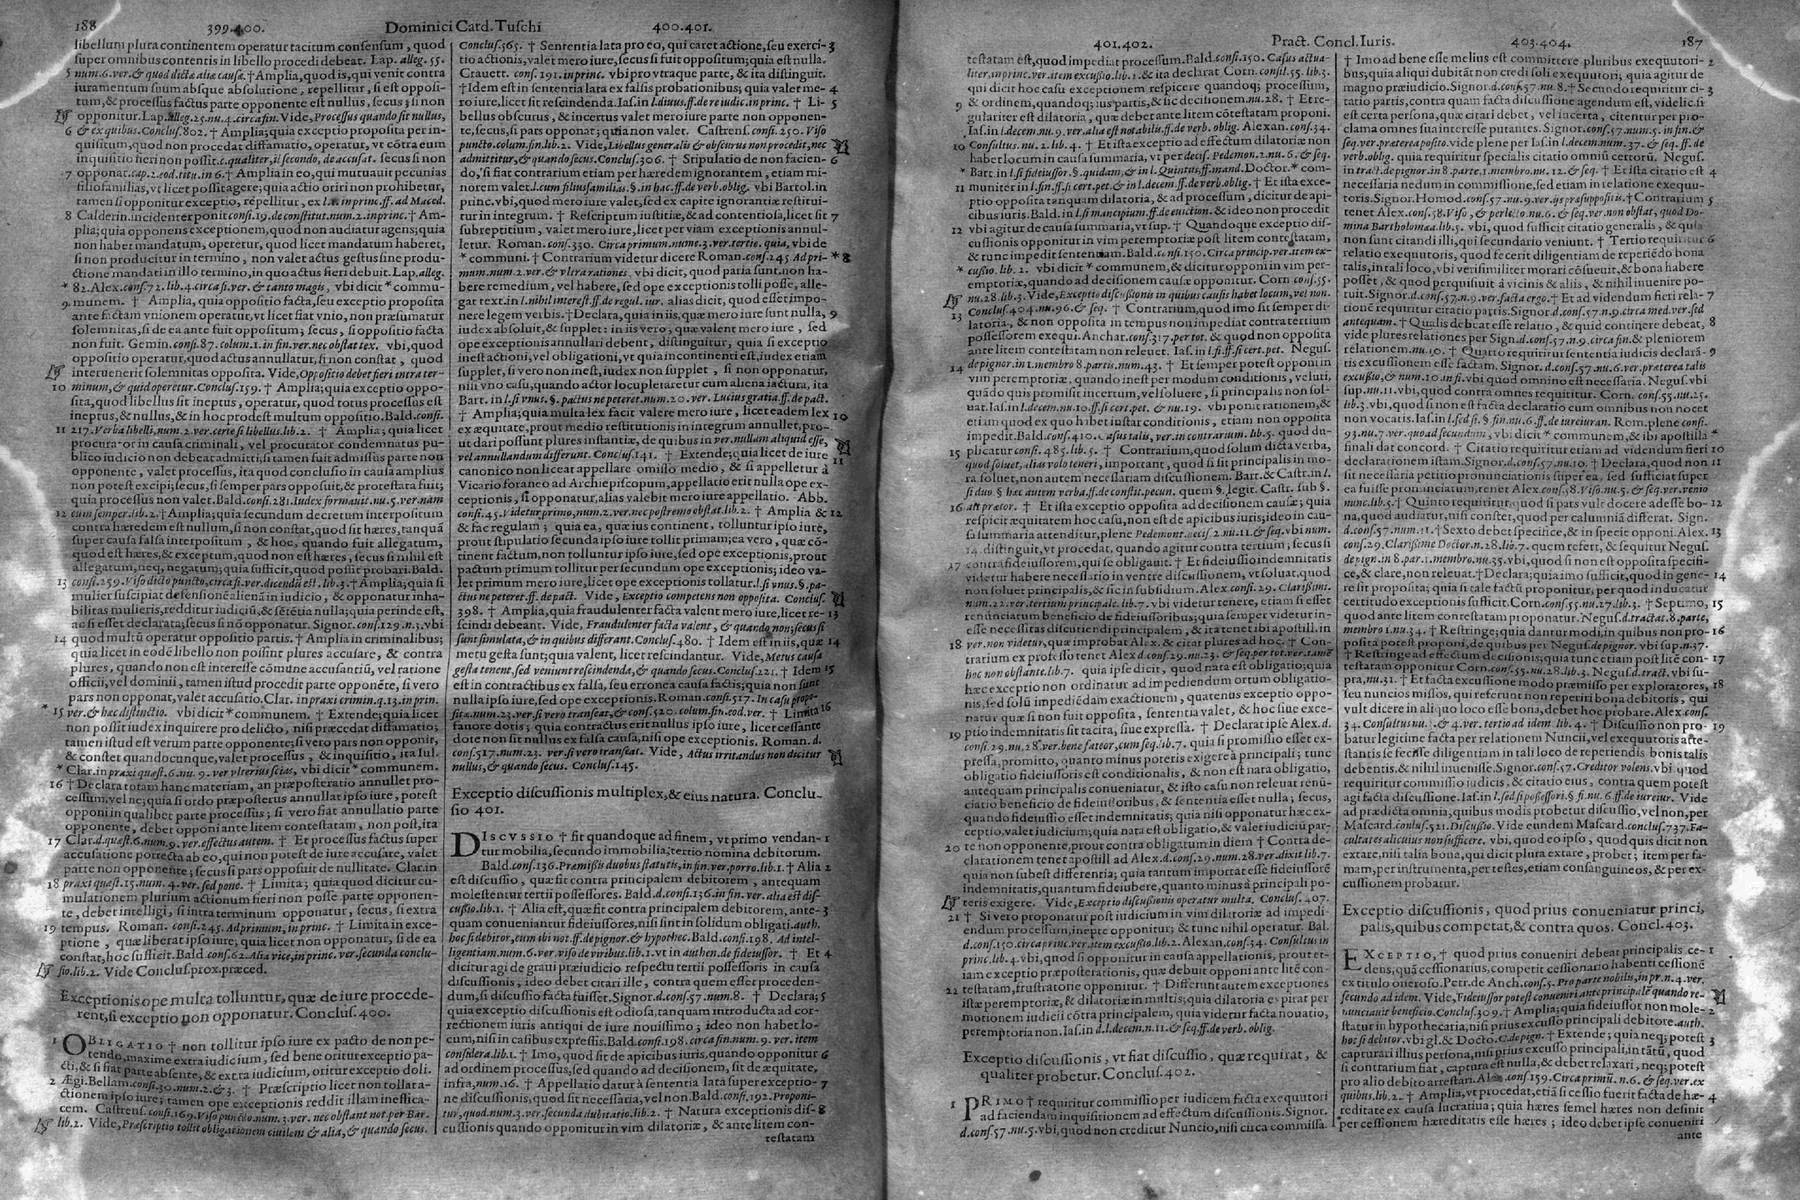 188 399.400. Dominici Card. Tuschi 400.401.
libellum plura continentem operatur tacitum consensum, quod
super omnibus contentis in libello procedi debeat. Lap. alleg. 55.
5 num. 6. ver. & quod dictæ aliæ causæ. † Amplia, quod is, qui venit contra
iuramentum suum absque absolutione, repellitur, si est opposi-
tum, & processus factus parte opponente est nullus, secus; si non
opponitur. Lap. alleg. 25. nu. 4. circa fin. Vide, Processus quando sit nullus,
6 & ex quibus. Conclus. 802. † Amplia; quia exceptio proposita per in-
quisitum, quod non procedat diffamatio, operatur, vt cõtra eum
inquisitio fieri non possit. c. qualiter, il secondo, de accusat. secus si non
7 opponat. cap. 2. eod. titu. in 6. † Amplia in eo, qui mutuauit pecunias
filiofamilias, vt licet possit agere; quia actio oriri non prohibetur,
tamen si opponitur exceptio, repellitur, ex l. 1. in princ. ff. ad Maced.
8 Calderin. incidenter ponit cons. 19. de constitut. num. 2. in princ. † Am-
plia; quia opponens exceptionem, quod non audiatur agens; quia
non habet mandatum, operetur, quod licet mandatum haberet,
si non producitur in termino, non valet actus gestus sine produ-
ctione mandati in illo termino, in quo actus fieri debuit. Lap. alleg.
* 82. Alex. cons. 72. lib. 4. circa fi. ver. & tanto magis, vbi dicit * commu-
9 munem. † Amplia, quia oppositio facta, seu exceptio proposita
ante factam vnionem operatur, vt licet fiat vnio, non præsumatur
solemnitas, si de ea ante fuit oppositum; secus, si oppositio facta
non fuit. Gemin. cons. 87. colum. 1. in fin. ver. nec obstat tex. vbi, quod
oppositio operatur, quod actus annullatur, si non constat, quod
interuenerit solemnitas opposita. Vide, Oppositio debet fieri intra ter-
10 minum, & quid operetur. Conclus. 159. † Amplia; quia exceptio oppo-
sita, quod libellus sit ineptus, operatur, quod totus processus est
ineptus, & nullus, & in hoc prodest multum oppositio. Bald. consi.
11 217. Verba libelli, num. 2. ver. certe si libellus. lib. 2. † Amplia; quia licet
procurator in causa criminali, vel procurator condemnatus pu-
blico iudicio non debeat admitti, si tamen fuit admissus parte non
opponente, valet processus, ita quod conclusio in causa amplius
non potest excipi; secus, si semper pars opposuit, & protestata fuit;
quia processus non valet. Bald. cons. 281. Iudex formauit. nu. 5. ver. nam
12 eum semper. lib. 2. † Amplia; quia secundum decretum interpositum
contra hæredem est nullum, si non constat, quod sit hæres, tanquã
super causa falsa interpositum, & hoc, quando fuit allegatum,
quod est hæres, & exceptum, quod non est hæres, secus si nihil est
allegatum, neq; negatum; quia sufficit, quod possit probari. Bald.
13 cons. 259. Viso dicto puncto, circa fi. ver. dicendũ est. lib. 3. † Amplia; quia si
mulier suscipiat defensionẽ alienã in iudicio, & opponatur inha-
bilitas mulieris, redditur iudiciũ, & sẽtẽtia nulla; quia perinde est,
ac si esset declarata; secus si nõ opponatur. Signor. cons. 129. n. 3. vbi
14 quod multũ operatur oppositio partis. † Amplia in criminalibus;
quia licet in eodẽ libello non possint plures accusare, & contra
plures, quando non est interesse cõmune accusantiũ, vel ratione
officii, vel dominii, tamen istud procedit parte opponẽte, si vero
pars non opponat, valet accusatio. Clar. in praxi crimin. q. 13. in prin.
* 15 ver. & hæc distinctio. vbi dicit * communem. † Extende; quia licet
non possit iudex inquirere pro delicto, nisi præcedat diffamatio;
tamen istud est verum parte opponente; si vero pars non opponit,
& constet quandocunque, valet processus, & inquisitio, ita Iul.
* Clar. in praxi quæst. 6. nu. 9. ver. vlterius scias, vbi dicit * communem.
16 † Declara totam hanc materiam, an præposteratio annullet pro-
cessum, vel ne; quia si ordo præposterus annullat ipso iure, potest
opponi in qualibet parte processus; si vero fiat annullatio parte
opponente, debet opponi ante litem contestatam, non post, ita
17 Clar. d. quæst. 6. num. 9. ver. effectus autem. † Et processus factus super
accusatione porrecta ab eo, qui non potest de iure accusare, valet
parte non opponente; secus si pars opposuit de nullitate. Clar. in
18 praxi quæst. 15. num. 4. ver. sed pone. † Limita; quia quod dicitur cu-
mulationem plurium actionum fieri non posse parte opponen-
te, debet intelligi, si intra terminum opponatur, secus, si extra
19 tempus. Roman. cons. 245. Ad primum, in princ. † Limita in exce-
ptione, quæ liberat ipso iure; quia licet non opponatur, si de ea
constat, hoc sufficit. Bald. cons. 62. Alia vice, in princ. ver. secunda conclu-
sio. lib. 2. Vide Conclus. prox. præced.
Exceptionis ope multa tolluntur, quæ de iure procede-
rent, si exceptio non opponatur. Conclus. 400.
1 OBLIGATIO † non tollitur ipso iure ex pacto de non pe-
tendo, maxime extra iudicium, sed bene oritur exceptio pa-
cti, & si fiat parte absente, & extra iudicium, oritur exceptio doli.
2 Ægi. Bellam. cons. 30. num. 2. & 3. † Præscriptio licet non tollat a-
ctionem ipso iure; tamen ope exceptionis reddit illam ineffica-
cem. Castrens. cons. 169. Viso puncto. num. 3. ver. nec obstant not. per Bar.
lib. 2. Vide, Præscriptio tollit obligationem ciuilem & alia, & quando secus.
Conclus. 565. † Sententia lata pro eo, qui caret actione, seu exerci- 3
tio actionis, valet mero iure, secus si fuit oppositum; quia est nulla.
Crauett. cons. 191. in princ. vbi pro vtraque parte, & ita distinguit.
† Idem est in sententia lata ex falsis probationibus; quia valet me- 4
ro iure, licet sit rescindenda. Ias. in l. diuus. ff. de re iudic. in princ. † Li- 5
bellus obscurus, & incertus valet mero iure parte non opponen-
te, secus, si pars opponat; quia non valet. Castrens. cons. 250. Viso
puncto. colum. fin. lib. 2. Vide, Libellus generalis & obscurus non procedit, nec
admittitur, & quando secus. Conclus. 306. † Stipulatio de non facien- 6
do, si fiat contrarium etiam per hæredem ignorantem, etiam mi-
norem valet. l. cum filiusfamilias. §. in hac. ff. de verb. oblig. vbi Bartol. in
princ. vbi, quod mero iure valet, sed ex capite ignorantiæ restitui-
tur in integrum. † Rescriptum iustitiæ, & ad contentiosa, licet sit 7
subreptitium, valet mero iure, licet per viam exceptionis annul-
letur. Roman. cons. 330. Circa primum. nume. 3. ver. tertie. quia, vbi de
* communi. † Contrarium videtur dicere Roman. cons. 245 Ad pri- * 8
mum. num. 2. ver. & vltra rationes, vbi dicit, quod paria sunt, non ha-
bere remedium, vel habere, sed ope exceptionis tolli posse, alle-
gat text. in l. nihil interest. ff. de regul. iur. alias dicit, quod esset impo-
nere legem verbis. † Declara, quia in iis, quæ mero iure sunt nulla, 9
iudex absoluit, & supplet: in iis vero, quæ valent mero iure, sed
ope exceptionis annullari debent, distinguitur, quia si exceptio
inest actioni, vel obligationi, vt quia incontinenti est, iudex etiam
supplet, si vero non inest, iudex non supplet, si non opponatur,
nisi vno casu, quando actor locupletaretur cum aliena iactura, ita
Bart. in l. si vnus. §. pactus ne peteret. num. 20. ver. Lucius gratia. ff. de pact.
† Amplia; quia multa lex facit valere mero iure, licet eadem lex 10
ex æquitate, prout medio restitutionis in integrum annullet, pro-
ut dari possunt plures instantiæ, de quibus in ver. nullum aliquid esse,
vel annullandum differant. Conclus. 141. † Extende; quia licet de iure 11
canonico non liceat appellare omisso medio, & si appelletur à
Vicario foraneo ad Archiepiscopum, appellatio erit nulla ope ex-
ceptionis, si opponatur, alias valebit mero iure appellatio. Abb.
cons. 45. Videtur primo, num. 2. ver. nec postremo obstat. lib. 2. † Amplia & 12
& fac regulam; quia ea, quæ ius continent, tolluntur ipso iure,
prout stipulatio secunda ipso iure tollit primam; ea vero, quæ cõ-
tinent factum, non tolluntur ipso iure, sed ope exceptionis, prout
pactum primum tollitur per secundum ope exceptionis; ideo va-
let primum mero iure, licet ope exceptionis tollatur. l. si vnus. §. pa-
ctus ne peteret. ff. de pact. Vide, Exceptio competens non opposita. Conclus.
398. † Amplia, quia fraudulenter facta valent mero iure, licet re- 13
scindi debeant. Vide, Fraudulenter facta valent, & quando non; secus si
sunt simulata, & in quibus differant. Conclus. 480. † Idem est in iis, quæ 14
metu gesta sunt; quia valent, licet rescindantur. Vide, Metus causa
gesta tenent, sed veniunt rescindenda, & quando secus. Conclus. 221. † Idem 15
est in contractibus ex falsa, seu erronea causa factis; quia non sunt
nulla ipso iure, sed ope exceptionis. Roman. cons. 517. In casu propo-
sitæ. num. 23. ver. si vero transeat, & cons. 520. colum. fin. eod. ver. † Limita 16
fauore dotis; quia contractus erit nullus ipso iure, licet cessante
dote non sit nullus ex falsa causa, nisi ope exceptionis. Roman. d.
cons. 517. num. 23. ver. si vero transeat. Vide, Actus irritandus non dicitur
nullus, & quando secus. Conclus. 145.
Exceptio discussionis multiplex, & eius natura. Conclu-
sio 401.
DISCVSSIO † fit quandoque ad finem, vt primo vendan- 1
tur mobilia, secundo immobilia; tertio nomina debitorum.
Bald. cons. 136. Præmissis duobus statutis, in fin. ver. porro. lib. 1. † Alia 2
est discussio, quæ fit contra principalem debitorem, antequam
molestentur tertii possessores. Bald. d. consi. 136. in fin. ver. alia est dis-
cussio. lib. 1. † Alia est, quæ fit contra principalem debitorem, ante- 3
quam conueniantur fideiussores, nisi sint in solidum obligati. auth.
hoc si debitor, cum ibi not. ff. de pignor. & hypothec. Bald. cons. 198. Ad intel-
ligentiam. num. 6. ver. viso de viribus. lib. 1. vt in authen. de fideiussor. † Et 4
dicitur agi de graui præiudicio respectu tertii possessoris in causa
discussionis, ideo debet citari ille, contra quem esset proceden-
dum, si discussio facta fuisset. Signor. d. cons. 57. num. 8. † Declara; 5
quia exceptio discussionis est odiosa, tanquam introducta ad cor-
rectionem iuris antiqui de iure nouissimo; ideo non habet lo-
cum, nisi in casibus expressis. Bald. cons. 198. circa fin. num. 9. ver. item
considera. lib. 1. † Imo, quod sit de apicibus iuris, quando opponitur 6
ad ordinem processus, sed quando ad decisionem, sit de æquitate,
infra, num. 16. † Appellatio datur à sententia lata super exceptio- 7
ne discussionis, quod sit necessaria, vel non. Bald. cons. 192. Proponi-
tur, quod. num. 3. ver. secunda dubitatio. lib. 2. † Natura exceptionis dis- 8
cussionis quando opponitur in vim dilatoriæ, & ante litem con-
testatam
401.402. Pract. Concl. Iuris. 403.404. 187
testatam est, quod impediat processum. Bald. cons. 150. Casus actua-
liter, in princ. ver. item excussio. lib. 1. & ita declarat Corn. consil. 55. lib. 3.
qui dicit hoc casu exceptionem respicere quandoq; processum,
& ordinem, quandoq; ius partis, & sic decisionem. nu. 28. † Et re-
9 gulariter est dilatoria, quæ debet ante litem cõtestatam proponi.
Ias. in l. decem. nu. 9. ver. alia est notabilis. ff. de verb. oblig. Alexan. cons. 34.
10 Consultus. nu. 2. lib. 4. † Et ista exceptio ad effectum dilatoriæ non
habet locum in causa summaria, vt per decis. Pedemon. 2. nu. 6. & seq.
* Bart. in l. si fideiussor. §. quidam, & in l. Quintus, ff. mand. Doctor. * com-
11 muniter in l. fin. ff. si cert. pet. & in l. decem. ff. de verb. oblig. † Et ista exce-
ptio opposita tanquam dilatoria, & ad processum, dicitur de api-
cibus iuris. Bald. in l. si mancipium. ff. de euiction. & ideo non procedit
12 vbi agitur de causa summaria, vt sup. † Quandoque exceptio dis-
cussionis opponitur in vim peremptoriæ post litem contestatam,
& tunc impedit sententiam. Bald. consi. 150. Circa princip. ver. item ex-
* cussio. lib. 2. vbi dicit * communem, & dicitur opponi in vim per-
emptoriæ, quando ad decisionem causæ opponitur. Corn. cons. 55.
nu. 28. lib. 3. Vide, Exceptio discussionis in quibus causis habet locum, vel non.
Conclus. 404. nu. 96. & seq. † Contrarium, quod imo sit semper di-
13 latoria, & non opposita in tempus non impediat contra tertium
possessorem exequi. Anchar. cons. 317. per tot. & quod non opposita
ante litem contestatam non releuet. Ias. in l. fi. ff. si cert. pet. Negus.
14 de pignor. in 1. membro 8. partis. num. 43. † Et semper potest opponi in
vim peremptoriæ, quando inest per modum conditionis, veluti,
quãdo quis promisit incertum, vel soluere, si principalis non sol-
uat. Ias. in l. decem. nu. 10. ff. si cert. pet. & nu. 19. vbi ponit rationem, &
etiam quod ex quo habet instar conditionis, etiam non opposita
impedit. Bald. cons. 410. Casus talis, ver. in contrarium. lib. 5. quod du-
15 plicatur consi. 485. lib. 5. † Contrarium, quod solum dicta verba,
quod soluet, alias volo teneri, important, quod si sit principalis in mo-
ra soluet, non autem necessitatem discussionem. Bart. & Castr. in l.
si duo. § hæc autem verba. ff. de constit. pecun. quem §. legit. Castr. sub §.
16 ait prætor. † Et ista exceptio opposita ad decisionem causæ; quia
respicit æquitatem hoc casu, non est de apicibus iuris; ideo in cau-
sa summaria attenditur, plene Pedemont. decis. 2. nu. 11. & seq. vbi num.
14. distinguit, vt procedat, quando agitur contra tertium; secus si
17 contra fideiussorem, qui se obligauit. † Et fideiussio indemnitatis
videtur habere necessario in ventre discussionem, vt soluat, quod
non soluet principalis, & sic in subsidium. Alex. cons. 29. Clarissimi.
num. 22. ver. tertium principale. lib. 7. vbi videtur tenere, etiam si esset
renunciatum beneficio de fideiussoribus; quia semper videtur in-
esse necessitas discutiendi principalem, & ita tenet ibi apostill. in
18 ver. non videtur, quæ improbat Alex. & citat plures ad hoc. † Con-
trarium ex professo tenet Alex d. cons. 29. nu. 23. & seq. per tot. ver. tamẽ
hoc non obstante. lib. 7. quia ipse dicit, quod rata est obligatio; quia
hæc exceptio non ordinatur ad impediendum ortum obligatio-
nis, sed solũ impediẽdam exactionem, quatenus exceptio oppo-
natur quæ si non fuit opposita, sententia valet, & hoc siue exce-
19 ptio indemnitatis sit tacita, siue expressa. † Declarat ipse Alex. d.
consi. 29. nu. 28. ver. bene fateor, cum seq. lib. 7. quia si promissio esset ex-
pressa, promitto, quanto minus poteris exigere à principali; tunc
obligatio fideiussoris est conditionalis, & non est nata obligatio,
antequam principalis conueniatur, & isto casu non releuat renũ-
ciatio beneficio de fideiussoribus, & sententia esset nulla; secus,
quando fideiussio esset indemnitatis; quia nisi opponatur hæc ex-
ceptio, valet iudicium; quia nata est obligatio, & valet iudiciũ par-
20 te non opponente, prout contra obligatum in diem † Contra de-
clarationem tenet apostill ad Alex. d. cons. 29. num. 28. ver. dixit lib. 7.
quia non subest differentia; quia tantum importat esse fideiussorẽ
indemnitatis, quantum fideiubere, quanto minus à principali po-
teris exigere. Vide, Exceptio discussionis operatur multa. Conclus. 407.
21 † Si vero proponatur post iudicium in vim dilatoriæ ad impedi-
endum processum, inepte opponitur; & tunc nihil operatur. Bal.
d. cons. 150. circa princ. ver. item excussio. lib. 2. Alexan. cons. 34. Consultus in
princ. lib. 4. vbi, quod si opponatur in causa appellationis, prout et-
iam exceptio præposterationis, quæ debuit opponi ante litẽ con-
22 testatam, frustratorie opponitur. † Differunt autem exceptiones
istæ peremptoriæ, & dilatoriæ in multis; quia dilatoria expirat per
motionem iudicii cõtra principalem, quia videtur facta nouatio,
peremptoria non. Ias. in d. l. decem. n. 11. & seq. ff. de verb. oblig.
Exceptio discussionis, vt fiat discussio, quæ requirat, &
qualiter probetur. Conclus. 402.
1 PRIMO † requiritur commissio per iudicem facta exequutori
ad faciendam inquisitionem ad effectum discussionis. Signor.
d. cons. 57. nu. 5. vbi, quod non creditur Nuncio, nisi ei ca commissa.
† Imo ad bene esse melius est committere pluribus exequutori- 2
bus; quia aliqui dubitãt non credi soli exequutori; quia agitur de
magno præiudicio. Signor. d. cons. 57. nu. 8. † Secundo requiritur ci- 3
tatio partis, contra quam facta discussione agendum est, videlic. si
est certa persona, quæ citari debet, vel incerta, citentur per pro-
clama omnes sua interesse putantes. Signor. cons. 57. num. 5. in fin. &
seq. ver. præterea posito. vide plene per Ias. in l. decem. num. 37. & seq. ff. de
verb. oblig. quia requiritur specialis citatio omniũ certorũ. Negus.
in tract. de pignor. in 8. parte, 1. membro. nu. 12. & seq. † Et ista citatio est 4
necessaria nedum in commissione, sed etiam in relatione exequu-
toris. Signor. Homod. cons. 57. nu. 9. ver. ijs præsuppositis. † Contrarium 5
tenet Alex. cons. 38. Viso, & perlecto. nu. 6. & seq. ver. non obstat, quod Do-
mina Bartholomæa. lib. 5. vbi, quod sufficit citatio generalis, & quia
non sunt citandi illi, qui secundario veniunt. † Tertio requiritur 6
relatio exequutoris, quod fecerit diligentiam de reperiẽdo bona
talis, in tali loco, vbi verisimiliter morari cõsueuit, & bona habere
posset, & quod perquisiuit à vicinis & aliis, & nihil inuenire po-
tuit. Signor. d. cons. 57. n. 9. ver. facta ergo. † Et ad videndum fieri rela- 7
tionẽ requiritur citatio partis. Signor. d. cons. 57. n. 9. circa med. ver. sed
antequam. † Qualis debeat esse relatio, & quid continere debeat, 8
vide plures relationes per Sign. d. cons. 57. n. 9. circa fin. & pleniorem
relationem. nu. 10. † Quarto requiritur sententia iudicis declarã- 9
tis excussionem esse factam. Signor. d. cons. 57. nu. 6. ver. præterea talis
excussio, & num. 10. in fi. vbi quod omnino est necessaria. Negus. vbi
sup. nu. 11. vbi, quod contra omnes requiritur. Corn. cons. 55. nu. 25.
lib. 3. vbi, quod si non est facta declaratio cum omnibus non nocet
non vocatis. Ias. in l. sed si. §. fin. nu. 6. ff. de iureiuran. Rom. plene consi.
93. nu. 7. ver. quo ad secundum, vbi dicit * communem, & ibi apostilla *
finali dat concord. † Citatio requiritur etiam ad videndum fieri 10
declarationem istam. Signor. d. cons. 57. nu. 10. † Declara, quod non 11
sit necessaria petitio pronunciationis super ea, sed sufficiat super
ea fuisse pronunciatum, tenet Alex. cons. 38. Viso. nu. 5. & seq. ver. venio
nunc. lib. 5. † Quinto requiritur; quod si pars vult docere adesse bo- 12
na, quod audiatur, nisi constet, quod per calumniã differat. Sign.
d. cons. 57. num. 11. † Sexto debet specifice, & in specie opponi. Alex. 13
cons. 29. Clarissime Doctor. n. 28. lib. 7. quem refert, & sequitur Negus.
de pign. in 8. par. 1. membro. nu. 35. vbi, quod si non est opposita specifi-
ce, & clare, non releuat. † Declara; quia imo sufficit, quod in gene- 14
re sit proposita; quia si tale factũ proponitur, per quod inducatur
certitudo exceptionis sufficit. Corn. cons. 55. nu. 27. lib. 3. † Septimo, 15
quod ante litem contestatam proponatur. Negus. d. tractat. 8. parte,
membro 1. nu. 34. † Restringe; quia dantur modi, in quibus non pro- 16
posita potest proponi, de quibus per Negus. de pignor. vbi sup. n. 37.
† Restringe ad effectũ decisionis; quia tunc etiam post litẽ con- 17
testatam opponitur Corn. cons. 55. nu. 28. lib. 3. Negus. d. tract. vbi su-
pra, nu. 31. † Et facta excussione modo præmisso per exploratores, 18
seu nuncios missos, qui referunt non reperiri bona debitoris, qui
vult dicere in aliquo loco esse bona, debet hoc probare. Alex. cons.
34. Consultus nu. 3. & 4. ver. tertio ad idem. lib. 4. † Discussio non pro- 19
batur legitime facta per relationem Nuncii, vel exequutoris atte-
stantis se fecisse diligentiam in tali loco de reperiendis bonis talis
debentis. & nihil inuenisse. Signor. cons. 57. Creditor volens. vbi quod
requiritur commissio iudicis, & citatio eius, contra quem potest
agi facta discussione. Ias. in l. sed si possessori. §. fi. nu. 6. ff. de iureiur. Vide
ad prædicta omnia, quibus modis probetur discussio, vel non, per
Mascard. conclus. 521. Discussio. Vide eundem Mascard. conclus. 737. Fa-
cultates alicuius non sufficere. vbi, quod eo ipso, quod quis dicit non
extare, nisi talia bona, qui dicit plura extare, probet; item per fa-
mam, per instrumenta, per testes, etiam consanguineos, & per ex-
cussionem probatur.
Exceptio discussionis, quod prius conueniatur princi,
palis, quibus competat, & contra quos. Concl. 403.
EXCEPTIO, † quod prius conueniri debeat principalis ce- 1
dens, quã cessionarius, competit cessionario habenti cessionẽ
ex titulo oneroso. Petr. de Anch. cons. 5. Pro parte nobilis, in pr. n. 4. ver.
secundo ad idem. Vide, Fideiussor potest conueniri ante principalẽ quando re-
nunciauit beneficio. Concl. 309. † Amplia; quia fideiussor non mole- 2
statur in hypothecaria, nisi prius excusso principali debitore. auth.
hoc si debitor. vbi gl. & Docto. C. de pign. † Extende; quia neq; potest 3
capturari illius persona, nisi prius excusso principali, in tãtũ, quod
si contrarium fiat, captura est nulla, & debet relaxari, neq; potest
pro alio debito arrestari. Alex. cons. 159. Circa primũ. n. 6. & seq. ver. ex
quibus. lib. 2. † Amplia, vt procedat, etiam si cessio fuerit facta de hæ- 4
reditate ex causa lucratiua; quia hæres semel hæres non desinit
per cessionem hæreditatis esse hæres; ideo debet ipse conueniri
ante